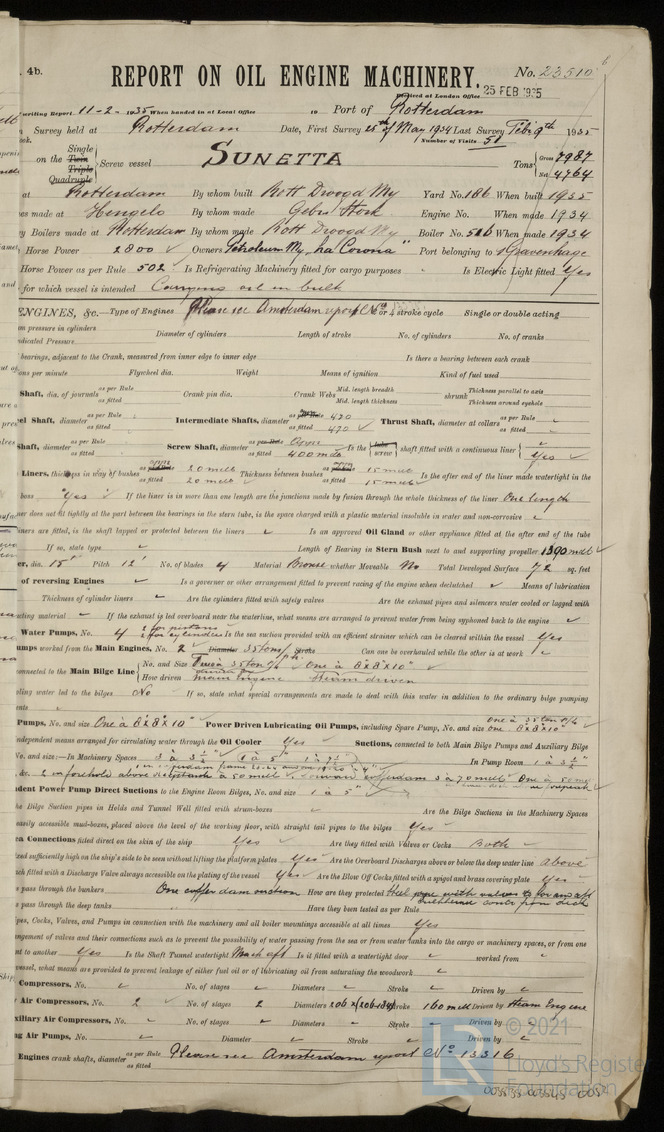 4b.
REPORT ON OIL ENGINE MACHINERY.
No. 23510
Received at London Office 25 FEB 1935
writing Report 11-2-1935 When handed in at Local Office 19 Port of Rotterdam
Survey held at Rotterdam Date, First Survey 25th of May 1934 Last Survey Feb 9th 1935
Number of Visits 51
on the Single Twin Triple Quadruple Screw vessel SUNETTA Tons Gross 7987 Net 4764
at Rotterdam By whom built Rott Droogd My Yard No. 186 When built 1935
es made at Hengelo By whom made Gebr Stork Engine No. When made 1934
y Boilers made at Rotterdam By whom made Rott Droogd My Boiler No. 516 When made 1934
Horse Power 2800 Owners Petroleum My "La Corona" Port belonging to s'Gravenhage
Horse Power as per Rule 502 Is Refrigerating Machinery fitted for cargo purposes Is Electric Light fitted Yes
for which vessel is intended Carrying oil in bulk
ENGINES, &c.—Type of Engines Please see Amsterdam report 2 or 4 stroke cycle Single or double acting
m pressure in cylinders Diameter of cylinders Length of stroke No. of cylinders No. of cranks
ndicated Pressure
bearings, adjacent to the Crank, measured from inner edge to inner edge Is there a bearing between each crank
ns per minute Flywheel dia. Weight Means of ignition Kind of fuel used
Shaft, dia. of journals as per Rule as fitted Crank pin dia. Crank Webs Mid. length breadth Mid. length thickness shrunk Thickness parallel to axis Thickness around eyehole
el Shaft, diameter as per Rule as fitted Intermediate Shafts, diameter as per Rule 420 as fitted 420 Thrust Shaft, diameter at collars as per Rule as fitted
Shaft, diameter as per Rule as fitted Screw Shaft, diameter as per Rule as fitted 400 mdb Is the tube screw shaft fitted with a continuous liner Yes
Liners, thickness in way of bushes as per Rule 20 mdb as fitted 20 mdb Thickness between bushes as per Rule 15 mdb as fitted 15 mdb Is the after end of the liner made watertight in the
boss Yes If the liner is in more than one length are the junctions made by fusion through the whole thickness of the liner One length
ner does not fit tightly at the part between the bearings in the stern tube, is the space charged with a plastic material insoluble in water and non-corrosive
iners are fitted, is the shaft lapped or protected between the liners Is an approved Oil Gland or other appliance fitted at the after end of the tube
If so, state type Length of Bearing in Stern Bush next to and supporting propeller 1390 mdb
er, dia. 15' Pitch 12' No. of blades 4 Material Bronze whether Moveable No Total Developed Surface 72 sq. feet
of reversing Engines Is a governor or other arrangement fitted to prevent racing of the engine when declutched Means of lubrication
Thickness of cylinder liners Are the cylinders fitted with safety valves Are the exhaust pipes and silencers water cooled or lagged with
ding material If the exhaust is led overboard near the waterline, what means are arranged to prevent water from being syphoned back to the engine
Water Pumps, No. 4 2 for pistons 2 for cylinders Is the sea suction provided with an efficient strainer which can be cleared within the vessel Yes
umps worked from the Main Engines, No. 2 Diameter 35 tons/ph. Stroke Can one be overhauled while the other is at work
onnected to the Main Bilge Line No. and Size Two à 35 ton/h One à 8x8x10"
How driven main engine Steam driven
ling water led to the bilges No If so, state what special arrangements are made to deal with this water in addition to the ordinary bilge pumping
Pumps, No. and size One à 8x8x10" Power Driven Lubricating Oil Pumps, including Spare Pump, No. and size one à 35 ton p/h one 8x8x10"
ndependent means arranged for circulating water through the Oil Cooler Yes Suctions, connected to both Main Bilge Pumps and Auxiliary Bilge
No. and size:—In Machinery Spaces 3 à 3½" 1 à 5" In Pump Room 1 à 3½"
dent Power Pump Direct Suctions to the Engine Room Bilges, No. and size 1 à 5"
he Bilge Suction pipes in Holds and Tunnel Well fitted with strum-boxes Are the Bilge Suctions in the Machinery Spaces
easily accessible mud-boxes, placed above the level of the working floor, with straight tail pipes to the bilges Yes
ea Connections fitted direct on the skin of the ship Yes Are they fitted with Valves or Cocks Both
xed sufficiently high on the ship's side to be seen without lifting the platform plates Yes Are the Overboard Discharges above or below the deep water line above
ch fitted with a Discharge Valve always accessible on the plating of the vessel Yes Are the Blow Off Cocks fitted with a spigot and brass covering plate Yes
s pass through the bunkers One cofferdam suction How are they protected Steel pipe with valves
s pass through the deep tanks Have they been tested as per Rule
pes, Cocks, Valves, and Pumps in connection with the machinery and all boiler mountings accessible at all times Yes
angement of valves and their connections such as to prevent the possibility of water passing from the sea or from water tanks into the cargo or machinery spaces, or from one
nt to another Yes Is the Shaft Tunnel watertight Mach aft Is it fitted with a watertight door worked from
vessel, what means are provided to prevent leakage of either fuel oil or of lubricating oil from saturating the woodwork
Compressors, No. No. of stages Diameters Stroke Driven by
Air Compressors, No. 2 No. of stages 2 Diameters Stroke 160 mdb Driven by Steam Engine
xiliary Air Compressors, No. No. of stages Diameters Stroke Driven by
ng Air Pumps, No. Diameter Stroke Driven by
Engines crank shafts, diameter as per Rule as fitted Please see Amsterdam report No 13316
© 2021
Lloyd's Register
Foundation